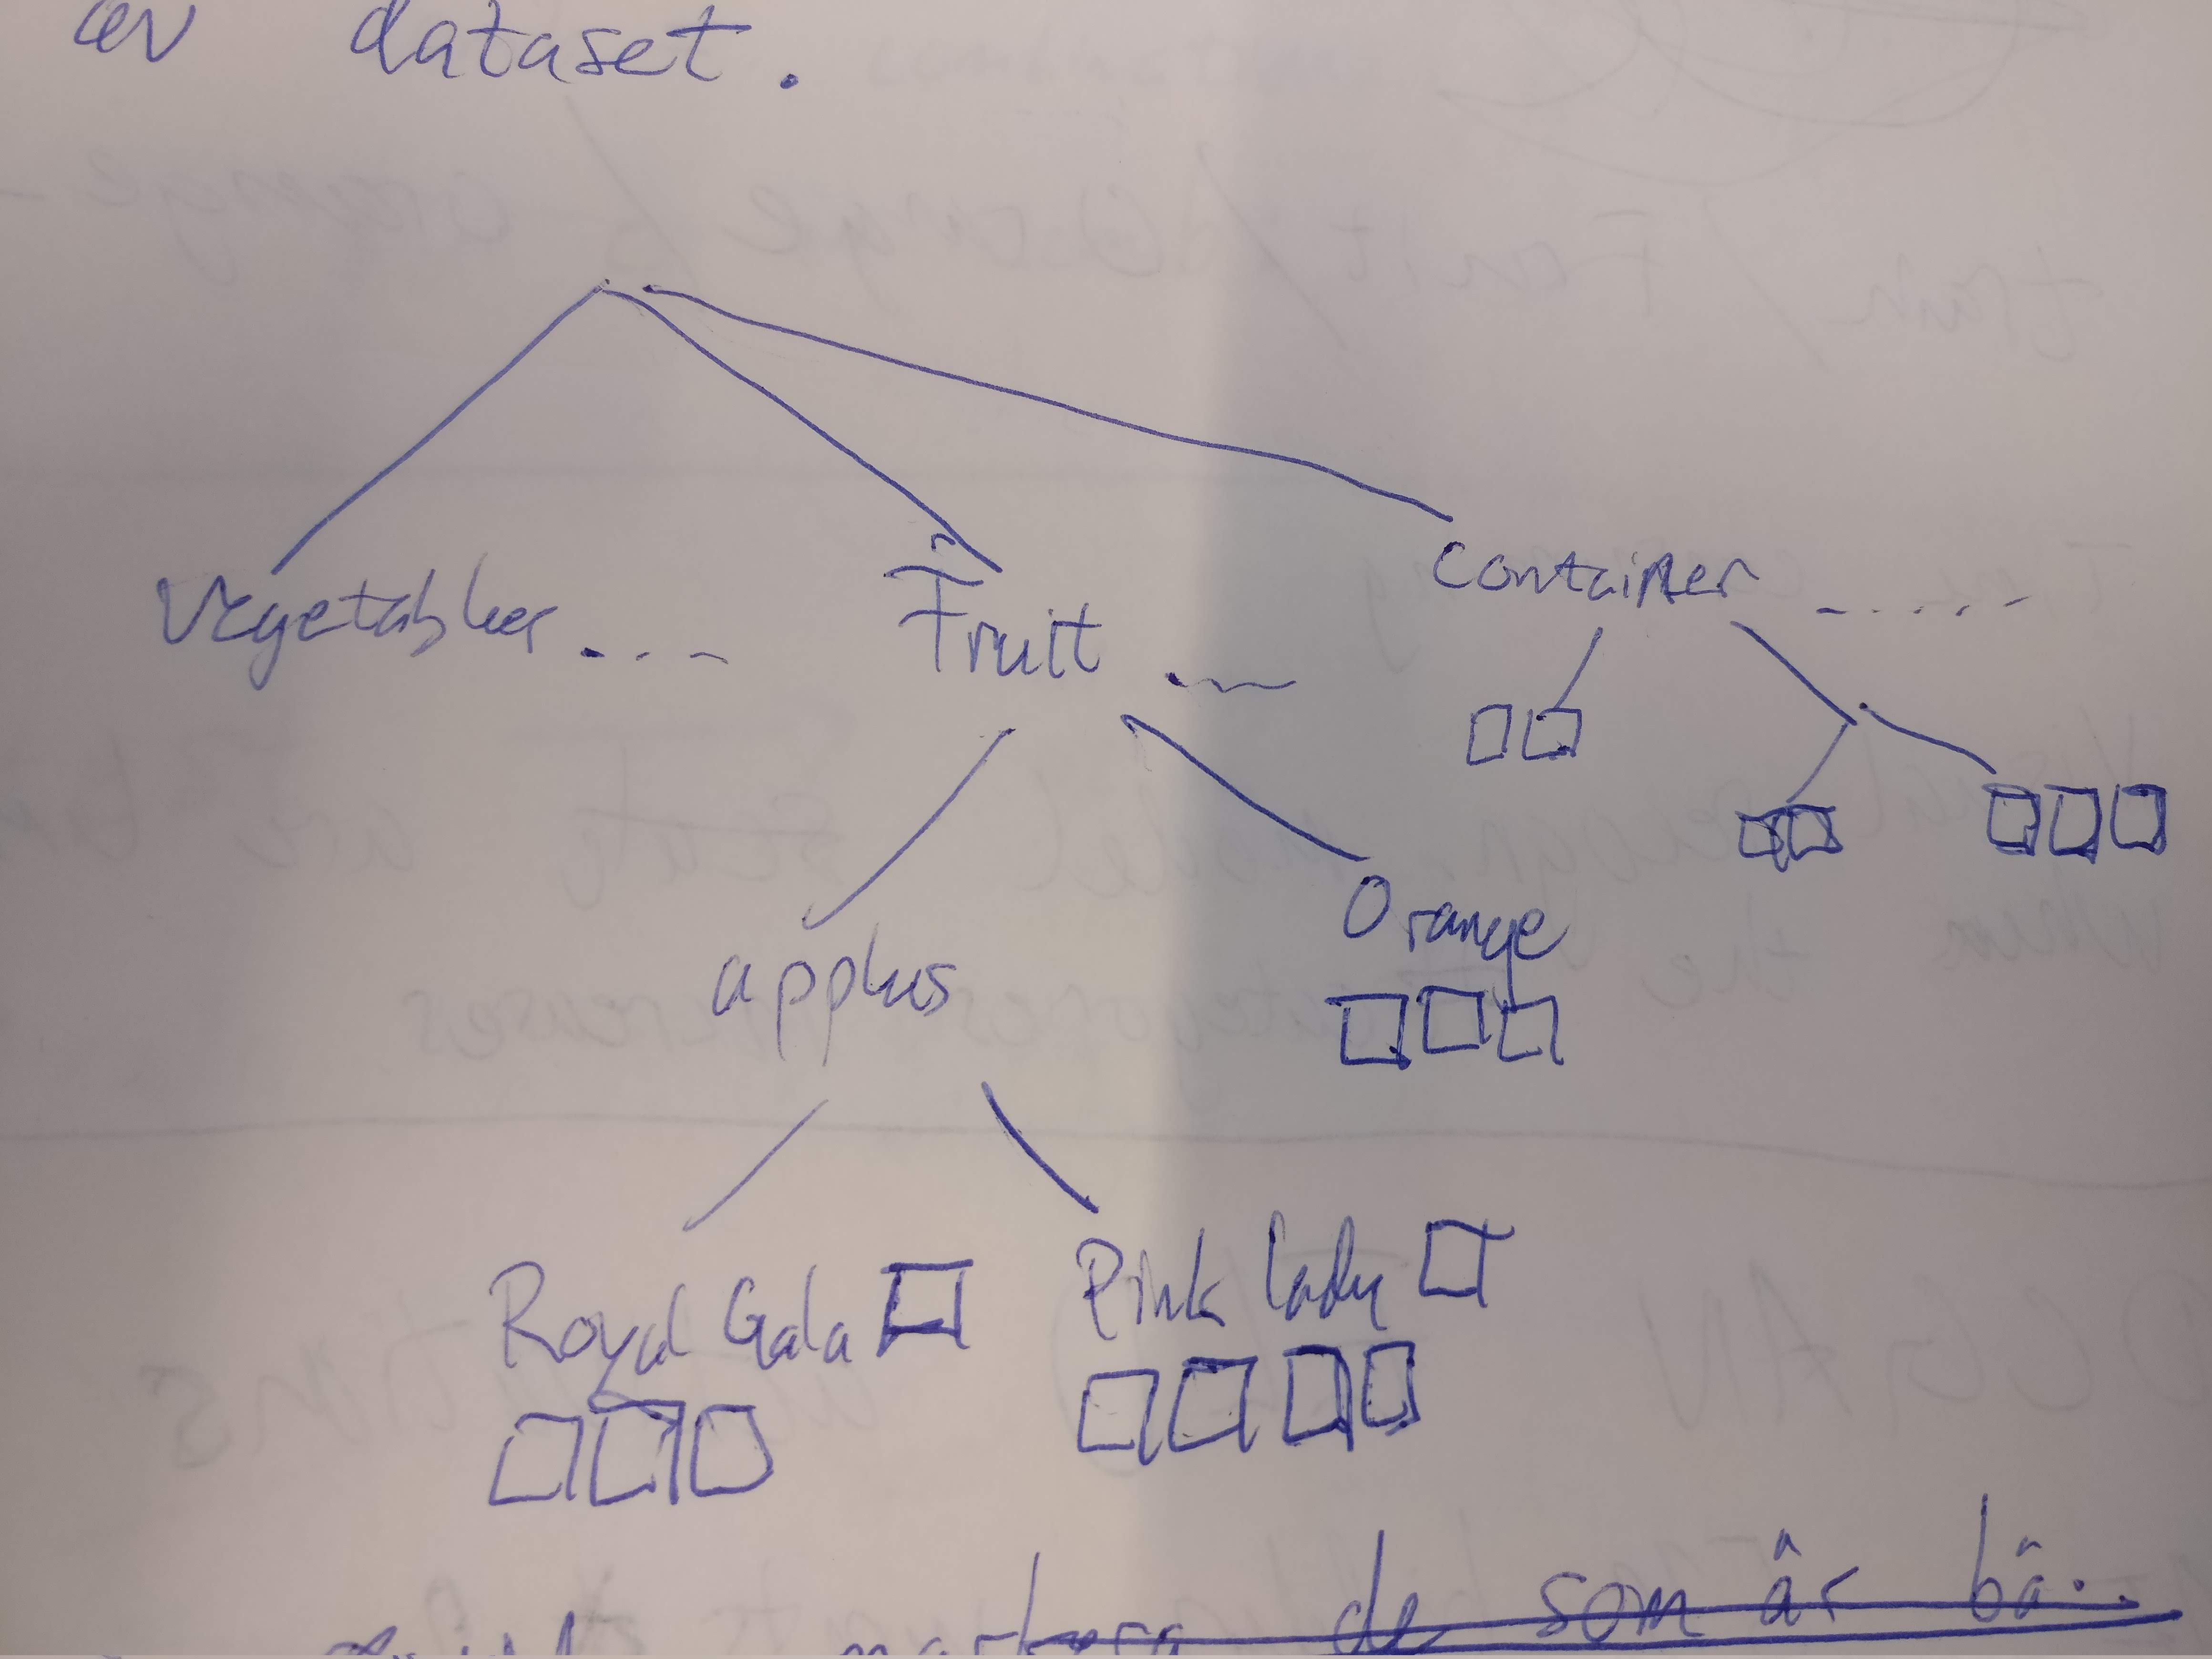 av dataset.
Vegetables...
Fruit
Container .....
apples
Orange
Royal Gala
Pink lady
markera de som är bä..